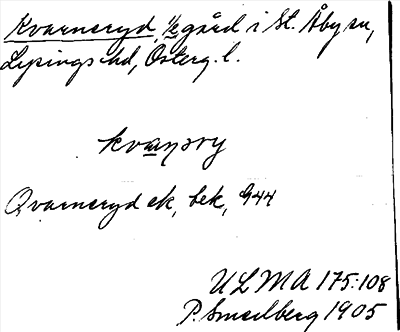 Kvarneryd, 1/2 gård i St. Åby sn,
Lysings hd, Österg. l.
kvaṇəry
Qvarneryd ek, bek, 944
ULMA 175:108
P. Smedberg 1905